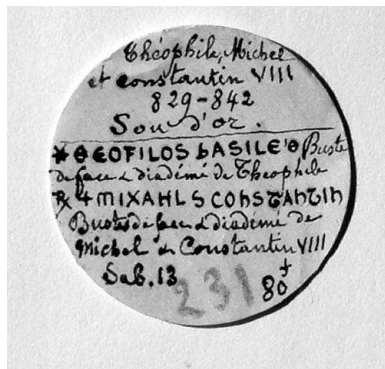 Théophile, Michel
et Constantin VIII
829-842
Sou d'or.
*ΘЄOFILOS bASILE'Θ Buste
de face & diadémé de Théophile
℞ + MIXAHL S CONSTANTIN
Bustes de face & diadémé de
Michel & Constantin VIII
Sab. 13
231
80